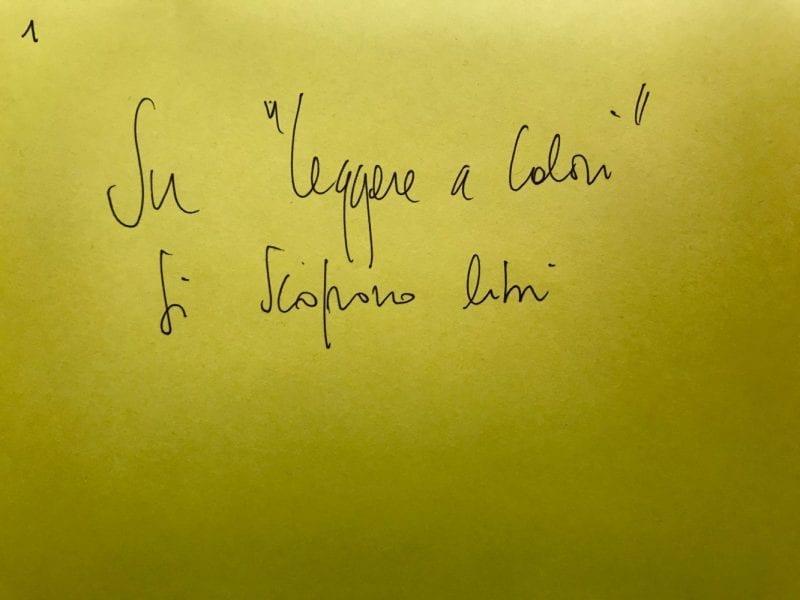 1
Su "Leggere a Colori"
si scoprono libri